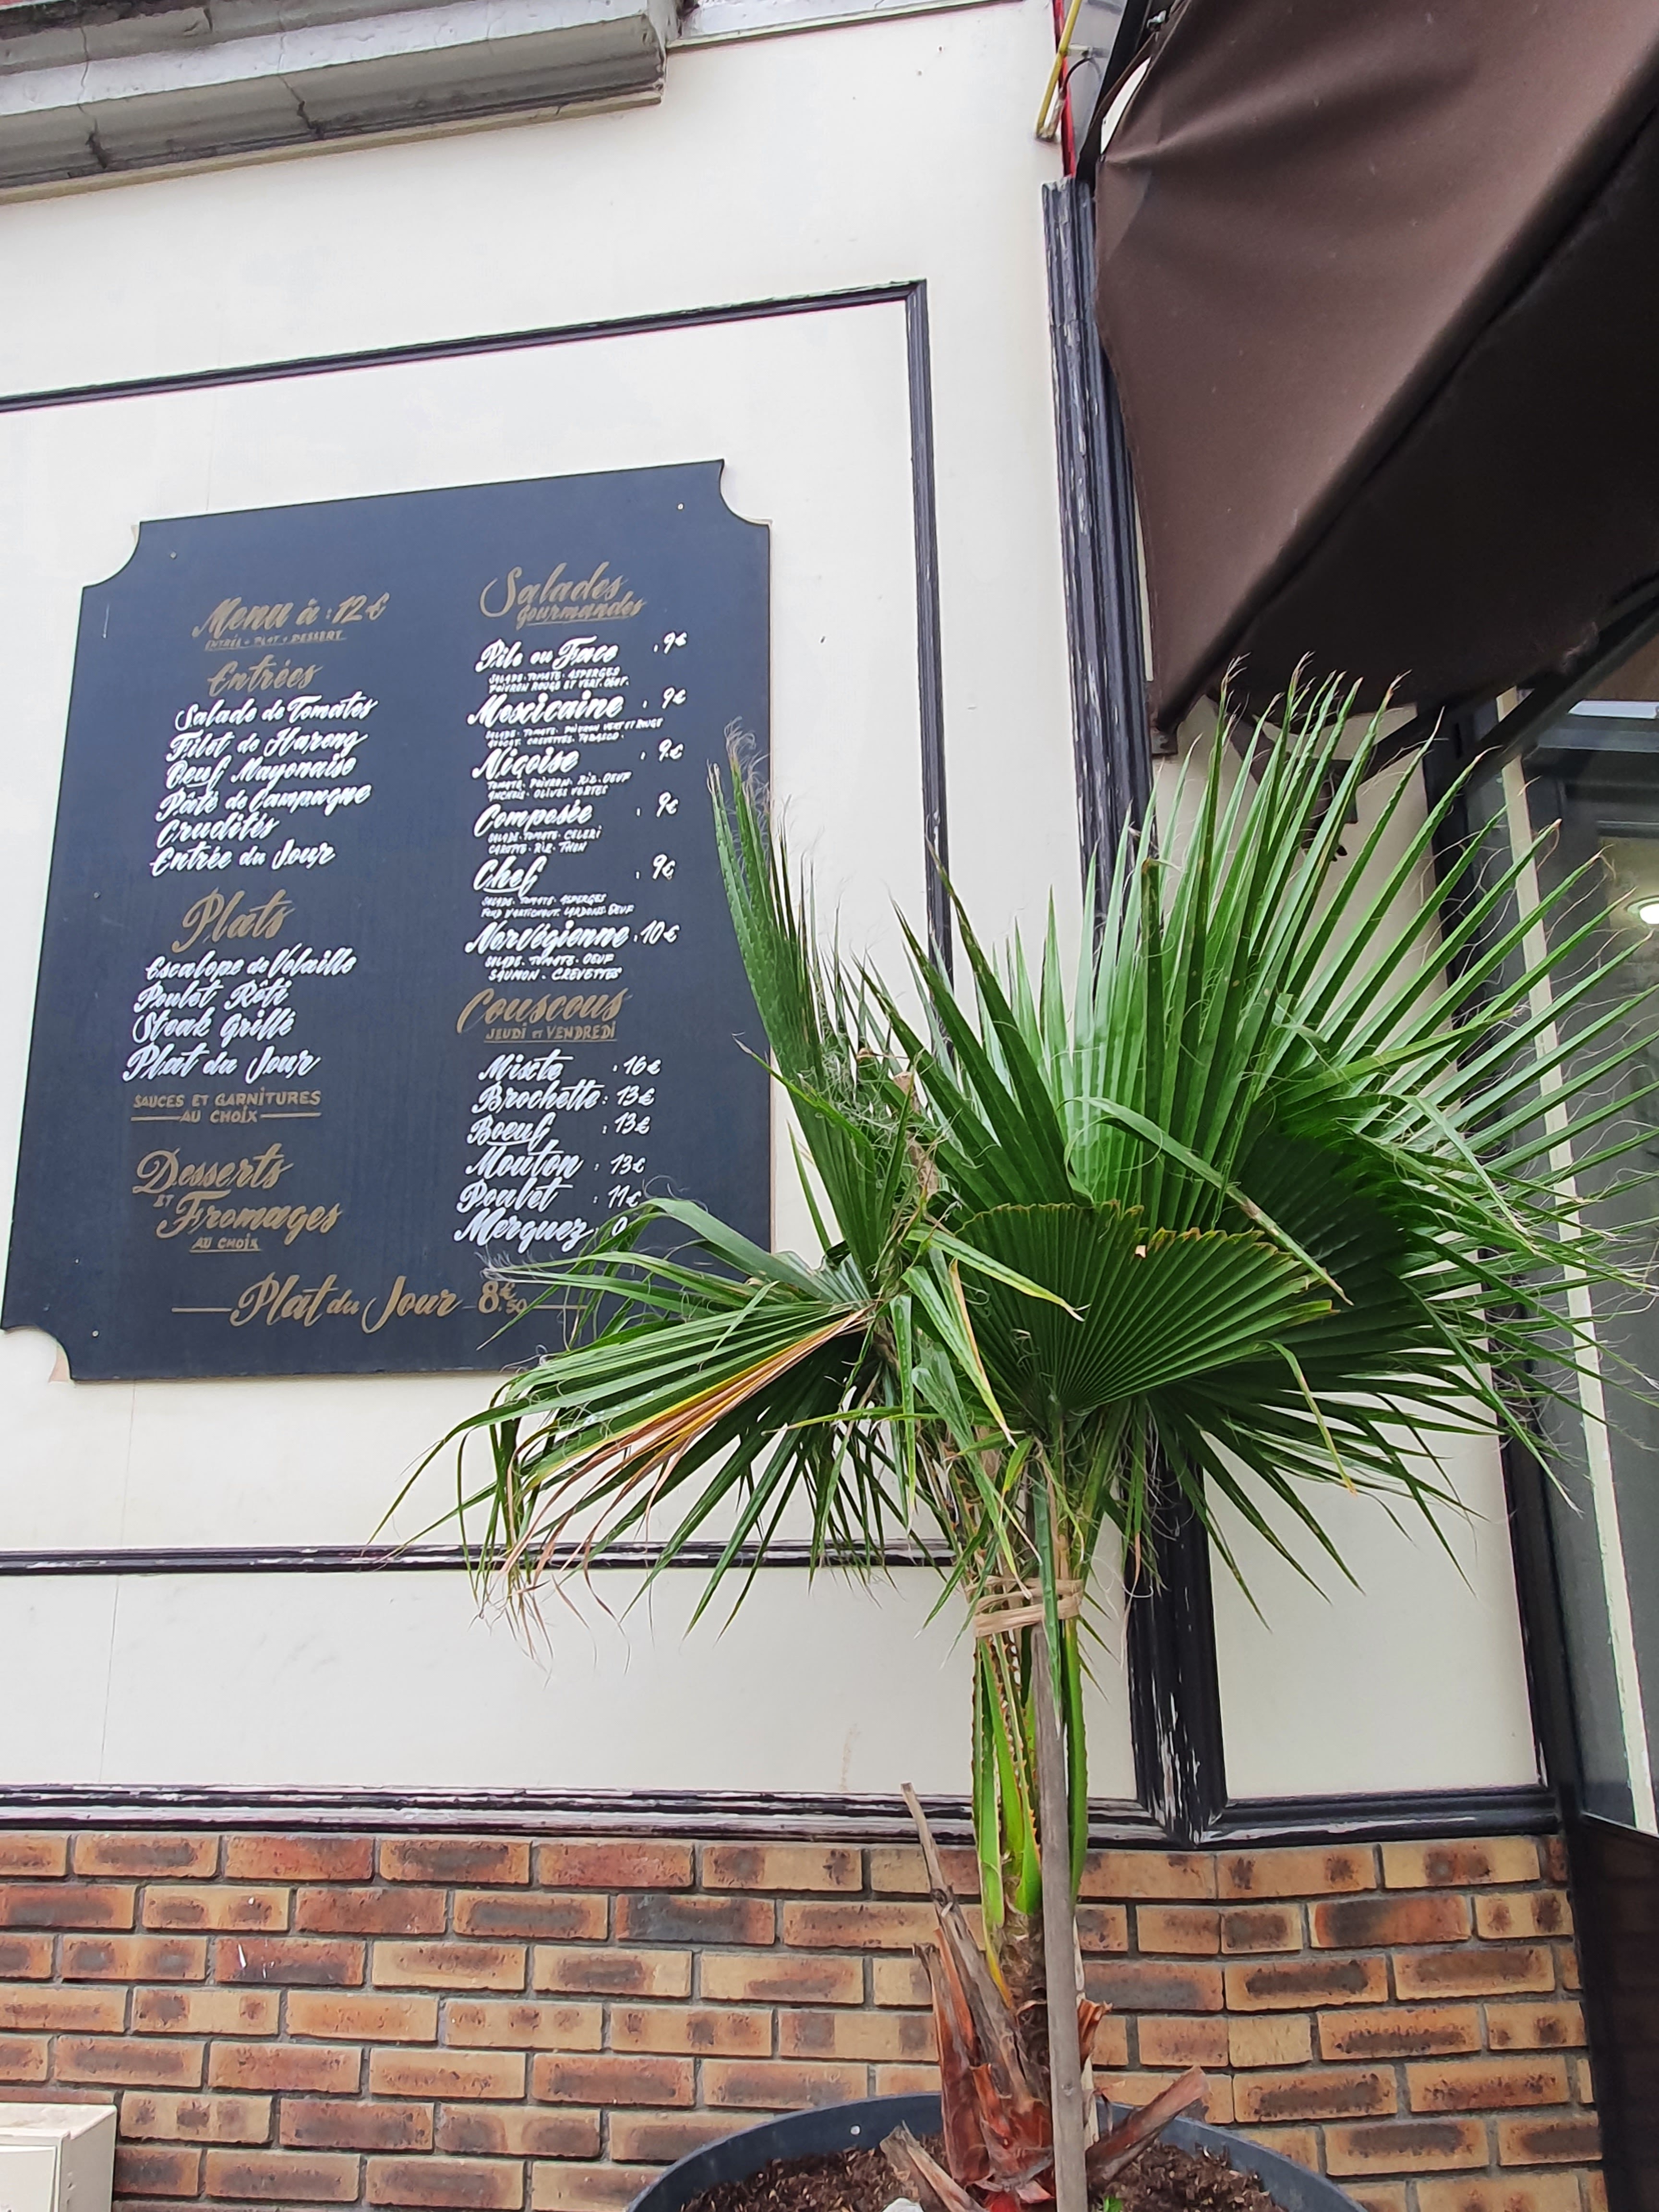 Menu à : 12€
ENTRÉE + PLAT + DESSERT
Entrées
Salade de Tomates
Filet de Hareng
Bœuf Mayonaise
Pâté de Campagne
Crudités
Entrée du Jour
Plats
Escalope de Volaille
Poulet Rôti
Steak Grillé
Plat du Jour
SAUCES ET GARNITURES
AU CHOIX
Desserts
ET
Fromages
AU CHOIX
Salades
Gourmandes
Pile ou Face : 9€
SALADE . TOMATE . ASPERGES
POIVRON ROUGE ET VERT . OEUF.
Mexicaine : 9€
SALADE . TOMATE . POIVRON VERT ET ROUGE
AVOCAT . CREVETTES . TABASCO .
Niçoise : 9€
TOMATE . POIVRON . RIZ . OEUF
ANCHOIS . OLIVES VERTES
Composée : 9€
SALADE . TOMATE . CELERI
CAROTTE . RIZ . THON
Chef : 9€
SALADE . TOMATE . ASPERGES
FOND D'ARTICHAUT . LARDONS . OEUF
Norvégienne : 10€
SALADE . TOMATE . OEUF
SAUMON . CREVETTES
Couscous
JEUDI ET VENDREDI
Mixte : 16€
Brochette : 13€
Boeuf : 13€
Mouton : 13€
Poulet : 11€
Merguez
Plat du Jour 8€.50